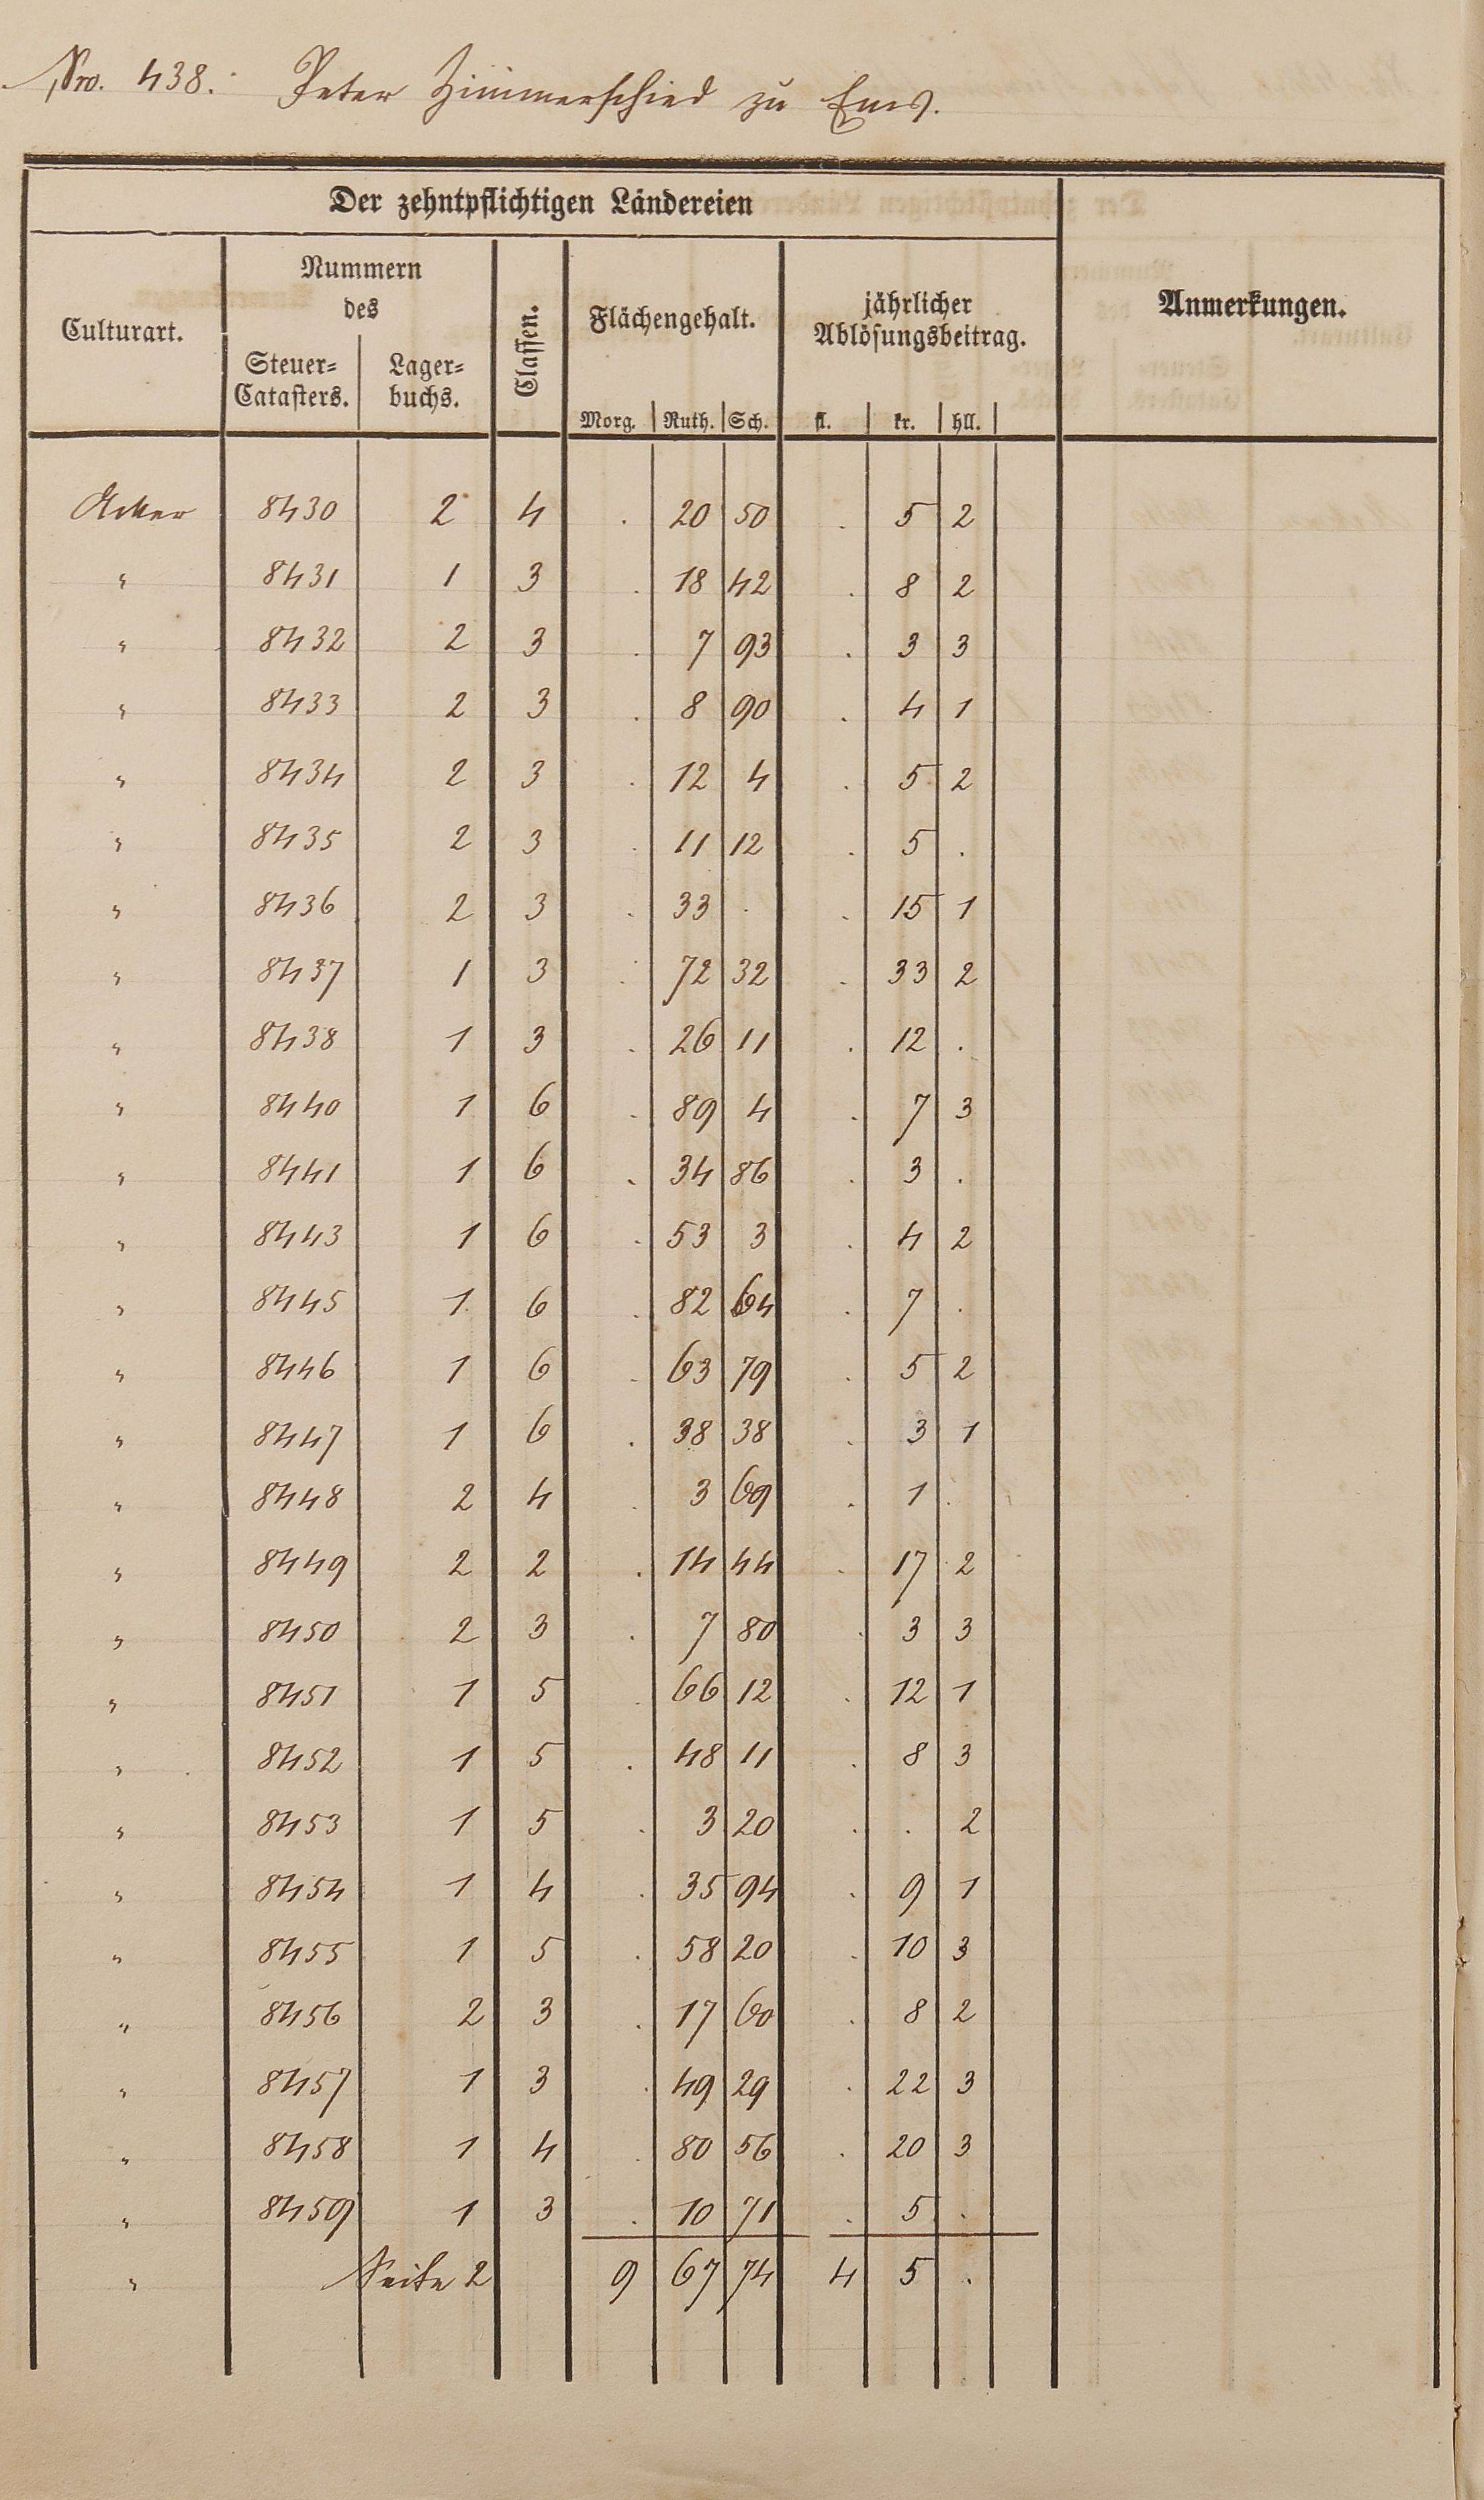 Nro. 438. Peter Zimmerschied zu Ems.
Der zehntpflichtigen Ländereien
Anmerkungen.
Culturart.
Nummern
des
Steuer=
Catasters.
Lager=
buchs.
Classen.
Flächengehalt.
Morg. Ruth. Sch.
jährlicher
Ablösungsbeitrag.
fl. kr. hll.
Acker 8430 2 4 . 20 50 . 5 2
" 8431 1 3 . 18 42 . 8 2
" 8432 2 3 . 7 93 . 3 3
" 8433 2 3 . 8 90 . 4 1
" 8434 2 3 . 12 4 . 5 2
" 8435 2 3 . 11 12 . 5 .
" 8436 2 3 . 33 . . 15 1
" 8437 1 3 . 72 32 . 33 2
" 8438 1 3 . 26 11 . 12 .
" 8440 1 6 . 89 4 . 7 3
" 8441 1 6 . 34 86 . 3 .
" 8443 1 6 . 53 3 . 4 2
" 8445 1 6 . 82 64 . 7 .
" 8446 1 6 . 63 79 . 5 2
" 8447 1 6 . 38 38 . 3 1
" 8448 2 4 . 3 69 . 1 .
" 8449 2 2 . 14 44 . 17 2
" 8450 2 3 . 7 80 . 3 3
" 8451 1 5 . 66 12 . 12 1
" 8452 1 5 . 48 11 . 8 3
" 8453 1 5 . 3 20 . . 2
" 8454 1 4 . 35 94 . 9 1
" 8455 1 5 . 58 20 . 10 3
" 8456 2 3 . 17 60 . 8 2
" 8457 1 3 . 49 29 . 22 3
" 8458 1 4 . 80 56 . 20 3
" 8459 1 3 . 10 71 . 5 .
" Seite 2 9 67 74 4 5 .